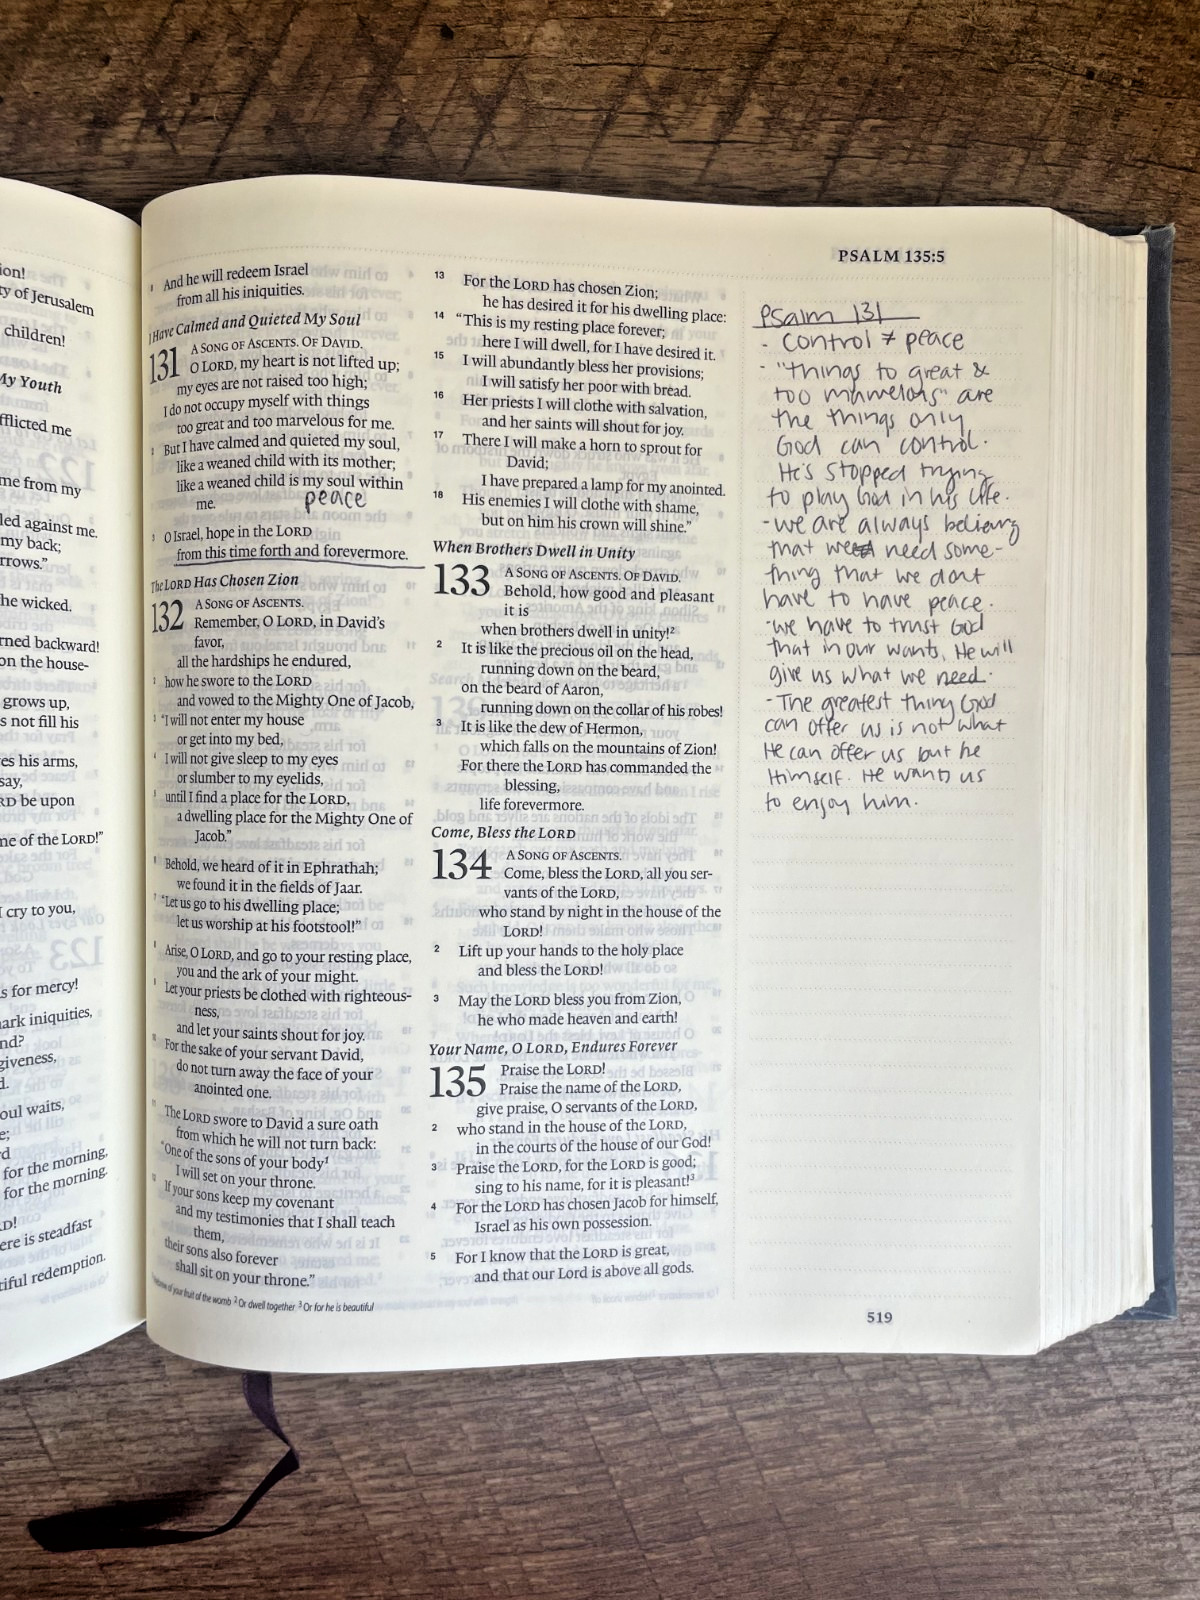 ion!
ty of Jerusalem
children!
My Youth
fflicted me
me from my
led against me.
my back;
rrows."
he wicked.
rned backward!
on the house-
grows up,
s not fill his
es his arms,
say,
RD be upon
ne of the LORD!"
I cry to you,
s for mercy!
ark iniquities,
nd?
giveness,
d.
oul waits,
e;
rd
for the morning,
for the morning.
RD!
ere is steadfast
tiful redemption.
8 And he will redeem Israel
from all his iniquities.
I Have Calmed and Quieted My Soul
131 A SONG OF ASCENTS. OF DAVID.
O LORD, my heart is not lifted up;
my eyes are not raised too high;
I do not occupy myself with things
too great and too marvelous for me.
2 But I have calmed and quieted my soul,
like a weaned child with its mother;
like a weaned child is my soul within
me. peace
3 O Israel, hope in the LORD
from this time forth and forevermore.
The LORD Has Chosen Zion
132 A SONG OF ASCENTS.
Remember, O LORD, in David's
favor,
all the hardships he endured,
2 how he swore to the LORD
and vowed to the Mighty One of Jacob,
3 "I will not enter my house
or get into my bed,
4 I will not give sleep to my eyes
or slumber to my eyelids,
5 until I find a place for the LORD,
a dwelling place for the Mighty One of
Jacob."
6 Behold, we heard of it in Ephrathah;
we found it in the fields of Jaar.
7 "Let us go to his dwelling place;
let us worship at his footstool!"
8 Arise, O LORD, and go to your resting place,
you and the ark of your might.
9 Let your priests be clothed with righteous-
ness,
and let your saints shout for joy.
10 For the sake of your servant David,
do not turn away the face of your
anointed one.
11 The LORD swore to David a sure oath
from which he will not turn back:
"One of the sons of your body1
I will set on your throne.
12 If your sons keep my covenant
and my testimonies that I shall teach
them,
their sons also forever
shall sit on your throne."
of your fruit of the womb 2 Or dwell together 3 Or for he is beautiful
PSALM 135:5
13 For the LORD has chosen Zion;
he has desired it for his dwelling place:
14 "This is my resting place forever;
here I will dwell, for I have desired it.
15 I will abundantly bless her provisions;
I will satisfy her poor with bread.
16 Her priests I will clothe with salvation,
and her saints will shout for joy.
17 There I will make a horn to sprout for
David;
I have prepared a lamp for my anointed.
18 His enemies I will clothe with shame,
but on him his crown will shine."
When Brothers Dwell in Unity
133 A SONG OF ASCENTS. OF DAVID.
Behold, how good and pleasant
it is
when brothers dwell in unity!2
2 It is like the precious oil on the head,
running down on the beard,
on the beard of Aaron,
running down on the collar of his robes!
3 It is like the dew of Hermon,
which falls on the mountains of Zion!
For there the LORD has commanded the
blessing,
life forevermore.
Come, Bless the LORD
134 A SONG OF ASCENTS.
Come, bless the LORD, all you ser-
vants of the LORD,
who stand by night in the house of the
LORD!
2 Lift up your hands to the holy place
and bless the LORD!
3 May the LORD bless you from Zion,
he who made heaven and earth!
Your Name, O LORD, Endures Forever
135 Praise the LORD!
Praise the name of the LORD,
give praise, O servants of the LORD,
2 who stand in the house of the LORD,
in the courts of the house of our God!
3 Praise the LORD, for the LORD is good;
sing to his name, for it is pleasant!3
4 For the LORD has chosen Jacob for himself,
Israel as his own possession.
5 For I know that the LORD is great,
and that our Lord is above all gods.
Psalm 131
- control ≠ peace
- "things to great &
too marvelous" are
the things only
God can control.
He's stopped trying
to play God in his life.
- we are always believing
that we need some-
thing that we dont
have to have peace.
- we have to trust God
that in our wants, He will
give us what we need.
- The greatest thing God
can offer us is not what
He can offer us but he
Himself. He wants us
to enjoy him.
519